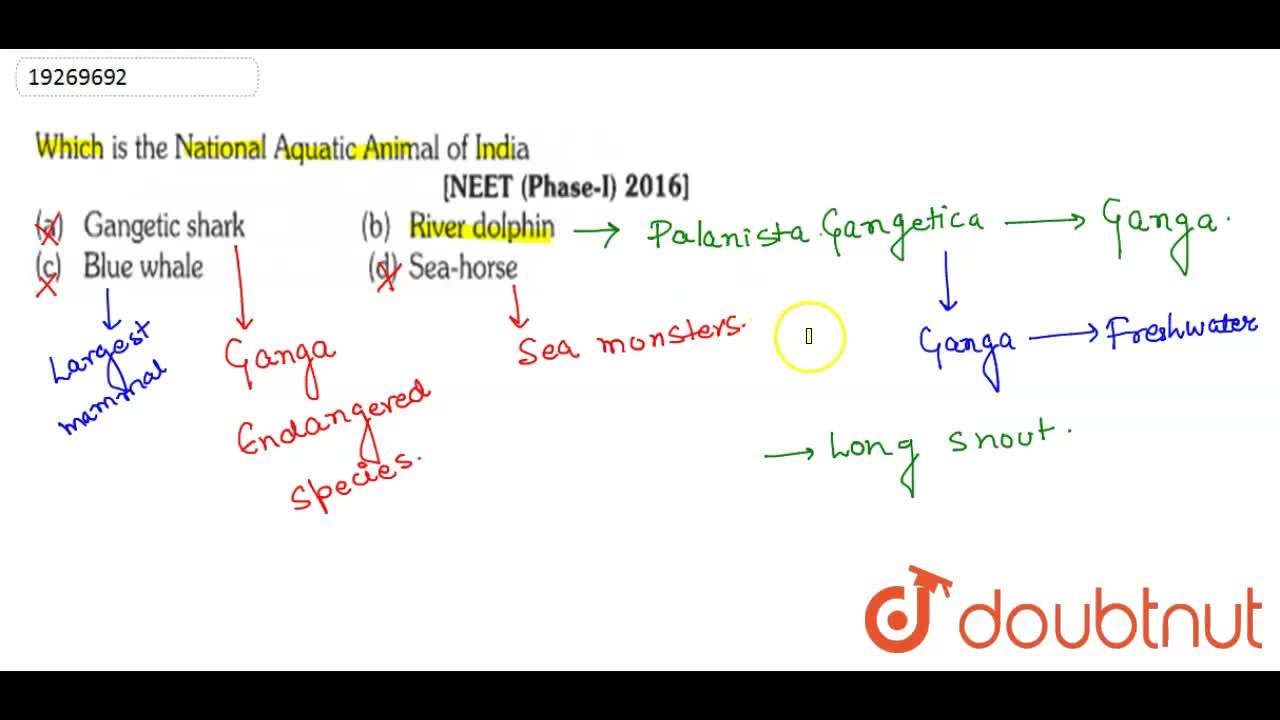 19269692
Which is the National Aquatic Animal of India
[NEET (Phase-I) 2016]
(a) Gangetic shark (b) River dolphin → Palanista Gangetica → Ganga.
(c) Blue whale (d) Sea-horse
Largest
mammal
Ganga
Endangered
species.
Sea monsters.
Ganga → Freshwater
→ Long snout.
doubtnut